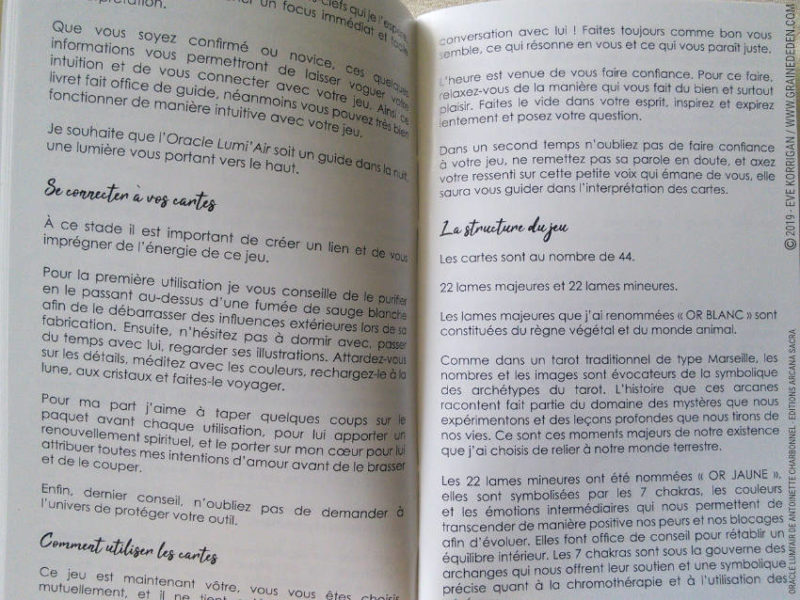 clefs qui je l'espère
un focus immédiat et facile
interprétation.
Que vous soyez confirmé ou novice, ces quelques
informations vous permettront de laisser voguer votre
intuition et de vous connecter avec votre jeu. Ainsi ce
livret fait office de guide, néanmoins vous pouvez très bien
fonctionner de manière intuitive avec votre jeu.
Je souhaite que l'Oracle Lumi'Air soit un guide dans la nuit,
une lumière vous portant vers le haut.
Se connecter à vos cartes
À ce stade il est important de créer un lien et de vous
imprégner de l'énergie de ce jeu.
Pour la première utilisation je vous conseille de le purifier
en le passant au-dessus d'une fumée de sauge blanche
afin de le débarrasser des influences extérieures lors de sa
fabrication. Ensuite, n'hésitez pas à dormir avec, passer
du temps avec lui, regarder ses illustrations. Attardez-vous
sur les détails, méditez avec les couleurs, rechargez-le à la
lune, aux cristaux et faites-le voyager.
Pour ma part j'aime à taper quelques coups sur le
paquet avant chaque utilisation, pour lui apporter un
renouvellement spirituel, et le porter sur mon cœur pour lui
attribuer toutes mes intentions d'amour avant de le brasser
et de le couper.
Enfin, dernier conseil, n'oubliez pas de demander à
l'univers de protéger votre outil.
Comment utiliser les cartes
Ce jeu est maintenant vôtre, vous vous êtes choisis
mutuellement, et il ne
conversation avec lui ! Faites toujours comme bon vous
semble, ce qui résonne en vous et ce qui vous paraît juste.
L'heure est venue de vous faire confiance. Pour ce faire,
relaxez-vous de la manière qui vous fait du bien et surtout
plaisir. Faites le vide dans votre esprit, inspirez et expirez
lentement et posez votre question.
Dans un second temps n'oubliez pas de faire confiance
à votre jeu, ne remettez pas sa parole en doute, et axez
votre ressenti sur cette petite voix qui émane de vous, elle
saura vous guider dans l'interprétation des cartes.
La structure du jeu
Les cartes sont au nombre de 44.
22 lames majeures et 22 lames mineures.
Les lames majeures que j'ai renommées « OR BLANC » sont
constituées du règne végétal et du monde animal.
Comme dans un tarot traditionnel de type Marseille, les
nombres et les images sont évocateurs de la symbolique
des archétypes du tarot. L'histoire que ces arcanes
racontent fait partie du domaine des mystères que nous
expérimentons et des leçons profondes que nous tirons de
nos vies. Ce sont ces moments majeurs de notre existence
que j'ai choisis de relier à notre monde terrestre.
Les 22 lames mineures ont été nommées « OR JAUNE »,
elles sont symbolisées par les 7 chakras, les couleurs
et les émotions intermédiaires qui nous permettent de
transcender de manière positive nos peurs et nos blocages
afin d'évoluer. Elles font office de conseil pour rétablir un
équilibre intérieur. Les 7 chakras sont sous la gouverne des
archanges qui nous offrent leur soutien et une symbolique
précise quant à la chromothérapie et à l'utilisation des
© 2019 - EVE KORRIGAN / WWW.GRAINEDEDEN.COM
ORACLE LUMI'AIR DE ANTOINETTE CHARBONNEL - EDITIONS ARCANA SACRA